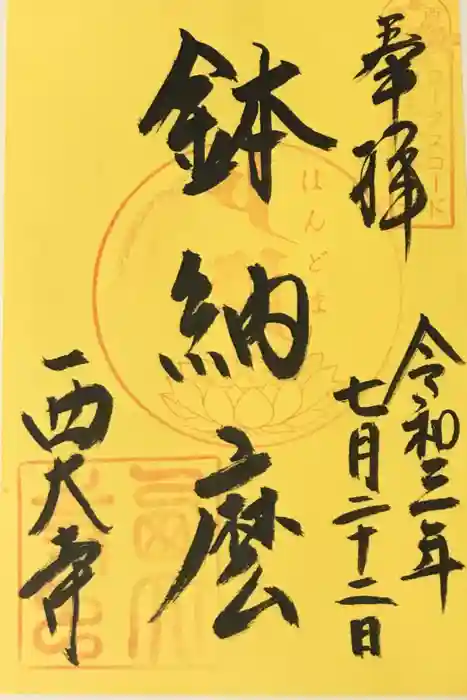 奉拝
令和三年
七月二十二日
鉢納麼
西大寺
はんどま